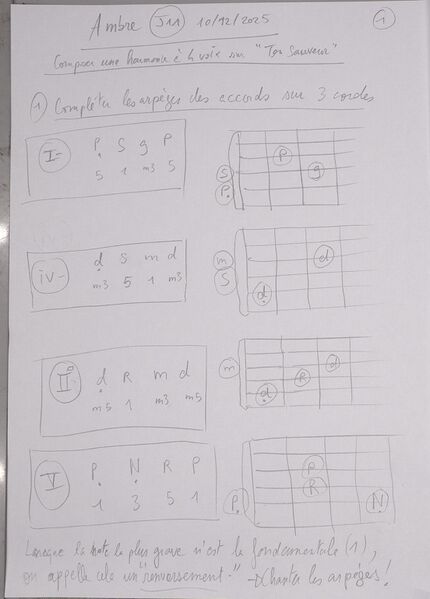 Ambre J11 10/12/2025 1
Composer une harmonie à 4 voix sur "Ton Sauveur"
1 Compléter les arpèges des accords sur 3 cordes
I- P S g P
5 1 m3 5
P g
S
P
iv- d S m d
m3 5 1 m3
m d
S
d
II° d R m d
m5 1 m3 m5
m d
R
d
V P N R P
1 3 5 1
P
R
P N
Lorsque la note la plus grave n'est la fondamentale (1),
on appelle cela un "renversement." → Chanter les arpèges!